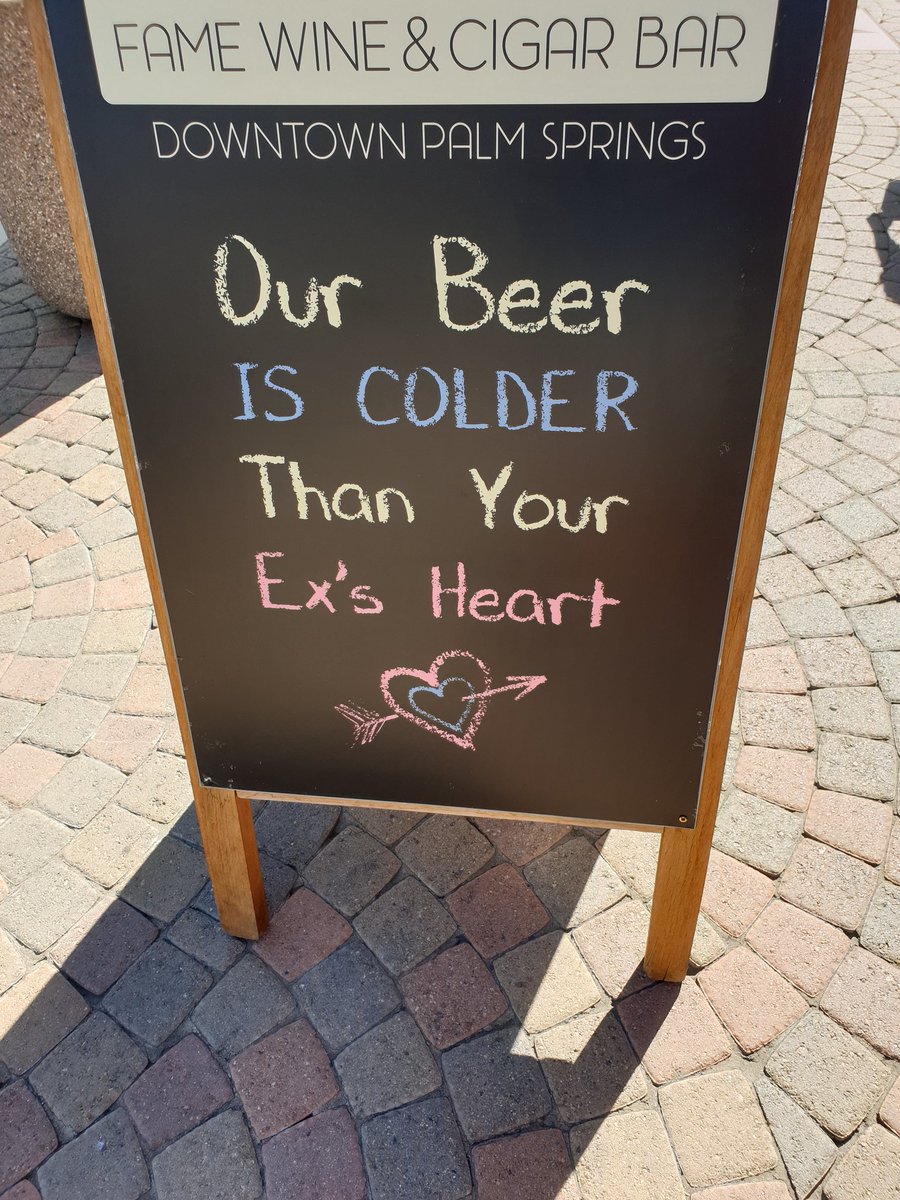 FAME WINE & CIGAR BAR
DOWNTOWN PALM SPRINGS
Our Beer
IS COLDER
Than Your
Ex's Heart